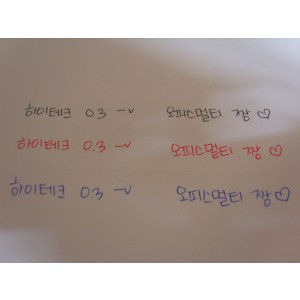 하이테크 0.3 ~ 오피스멀티 짱 ♡
하이테크 0.3 ~ 오피스멀티 짱 ♡
하이테크 0.3 ~ 오피스멀티 짱 ♡